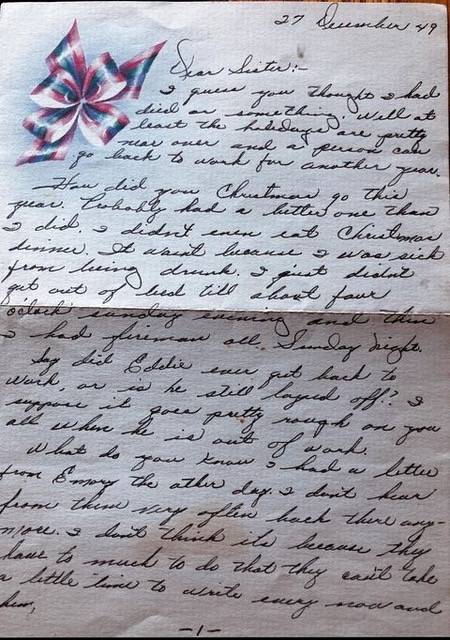 27 December 49
Dear Sister:-
I guess you thought I had
died or something. Well at
least the holidays are pretty
near over and a person can
go back to work for another year.
How did you Christmas go this
year. Probably had a better one than
I did. I didn't even eat Christmas
dinner. It wasnt because I was sick
from being drunk. I just didnt
get out of bed till about four
o'clock sunday evening and then
I had fireman all Sunday night.
Say did Eddie ever get back to
work, or is he still layed off? I
suppose it goes pretty rough on you
all when he is out of work.
What do you know I had a letter
from Emory the other day. I don't hear
from them very often back there any-
more. I don't think its because they
have to much to do that they can't take
a little time to write every now and
then,
-1-